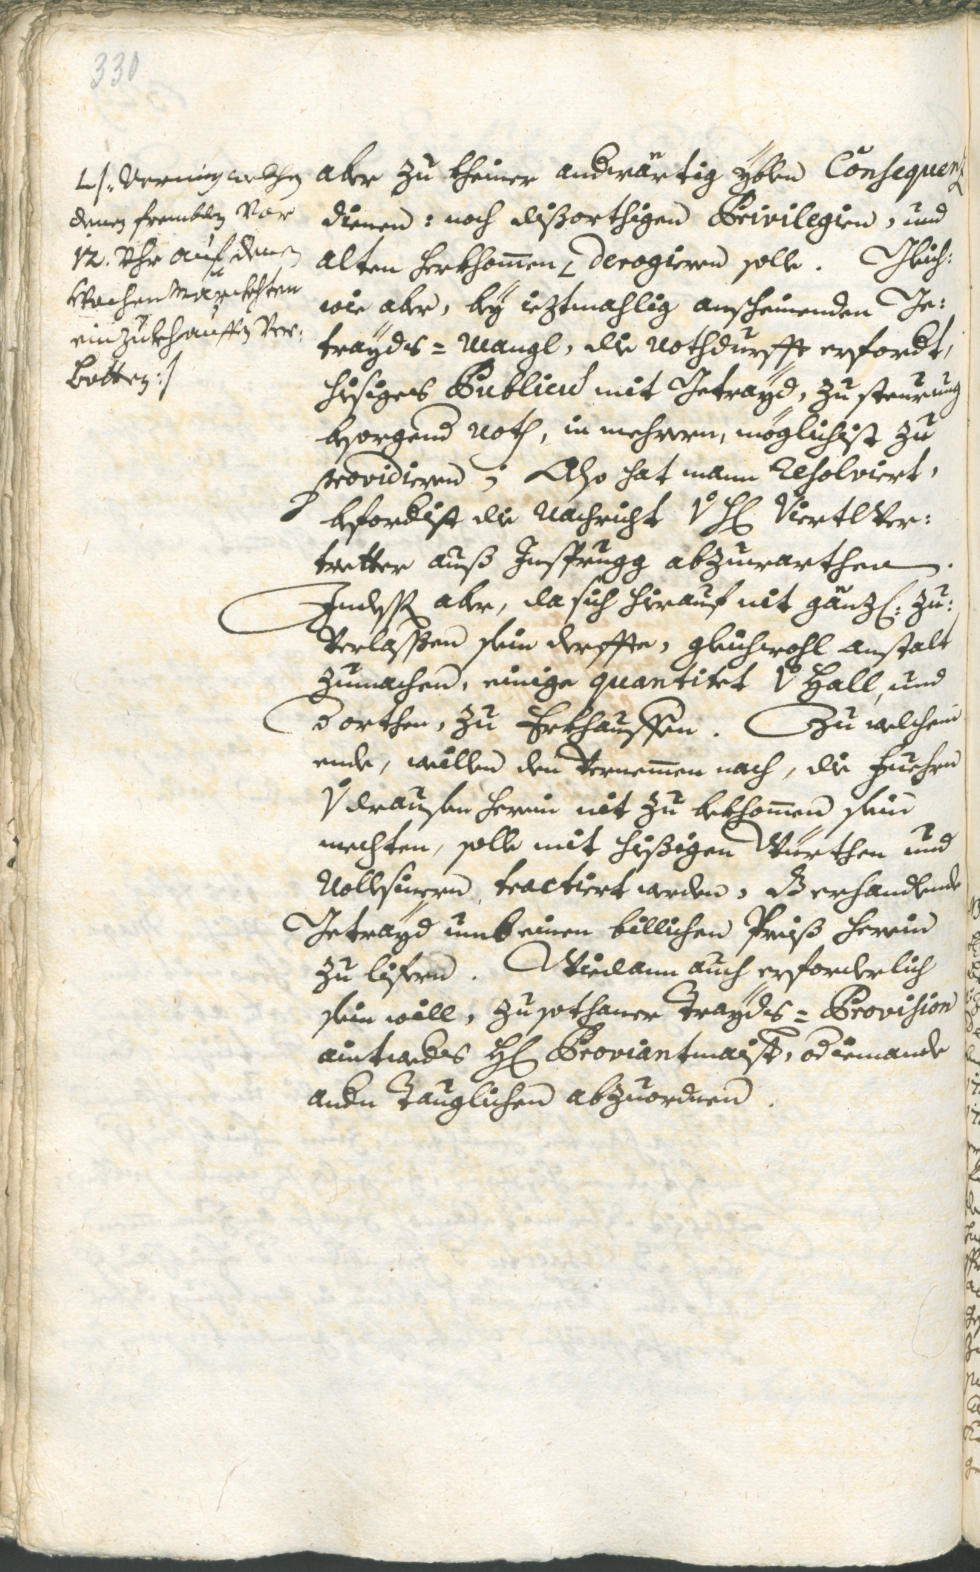 330
L /: vermög welchen
denen frembden vor
12. Uhr auf denen
Wochen Märckhten
einzukhauffen ver:
botten :/
aber zu kheiner andwärtig yblen Consequenz
dienen: noch dißorthigen Privilegien, und
alten herkhomen L derogieren solle. Gleich:
wie aber, bey ieztmahlig anscheinenden Ge:
trayds = Mangl, die Nothdurfft erfordt,
hiesiges Publicum mit Getrayd, zu steurung
besorgend Noth, in mehrern, möglichist zu
providieren; Also hat mann Resolviert,
befordist die Nachricht v H Viertl Ver:
tretter auß Insprugg abzuwarthen.
Indeß aber, da sich hierauf nit gänzl: zu:
verlassen sein derffte, gleichwohl anstalt
zumachen, einige quantitet v Hall, und
dorthen, zu Erkhauffen. Zu welchem
ende, weillen den Vernemen nach, die fuehren
v draussen herein nit zu bekhomen sein
mechten, solle mit hießigen Würthen und
Rollfuerern tractiert werden, d erhandlende
Getrayd umb einen billichen Preiß herein
zu lifern. Wiedann auch erforderlich
sein will, zu sothaner Trayds = Provision
aintweders H Proviantmaist, od iemande
andn Tauglichen abzuordnen.